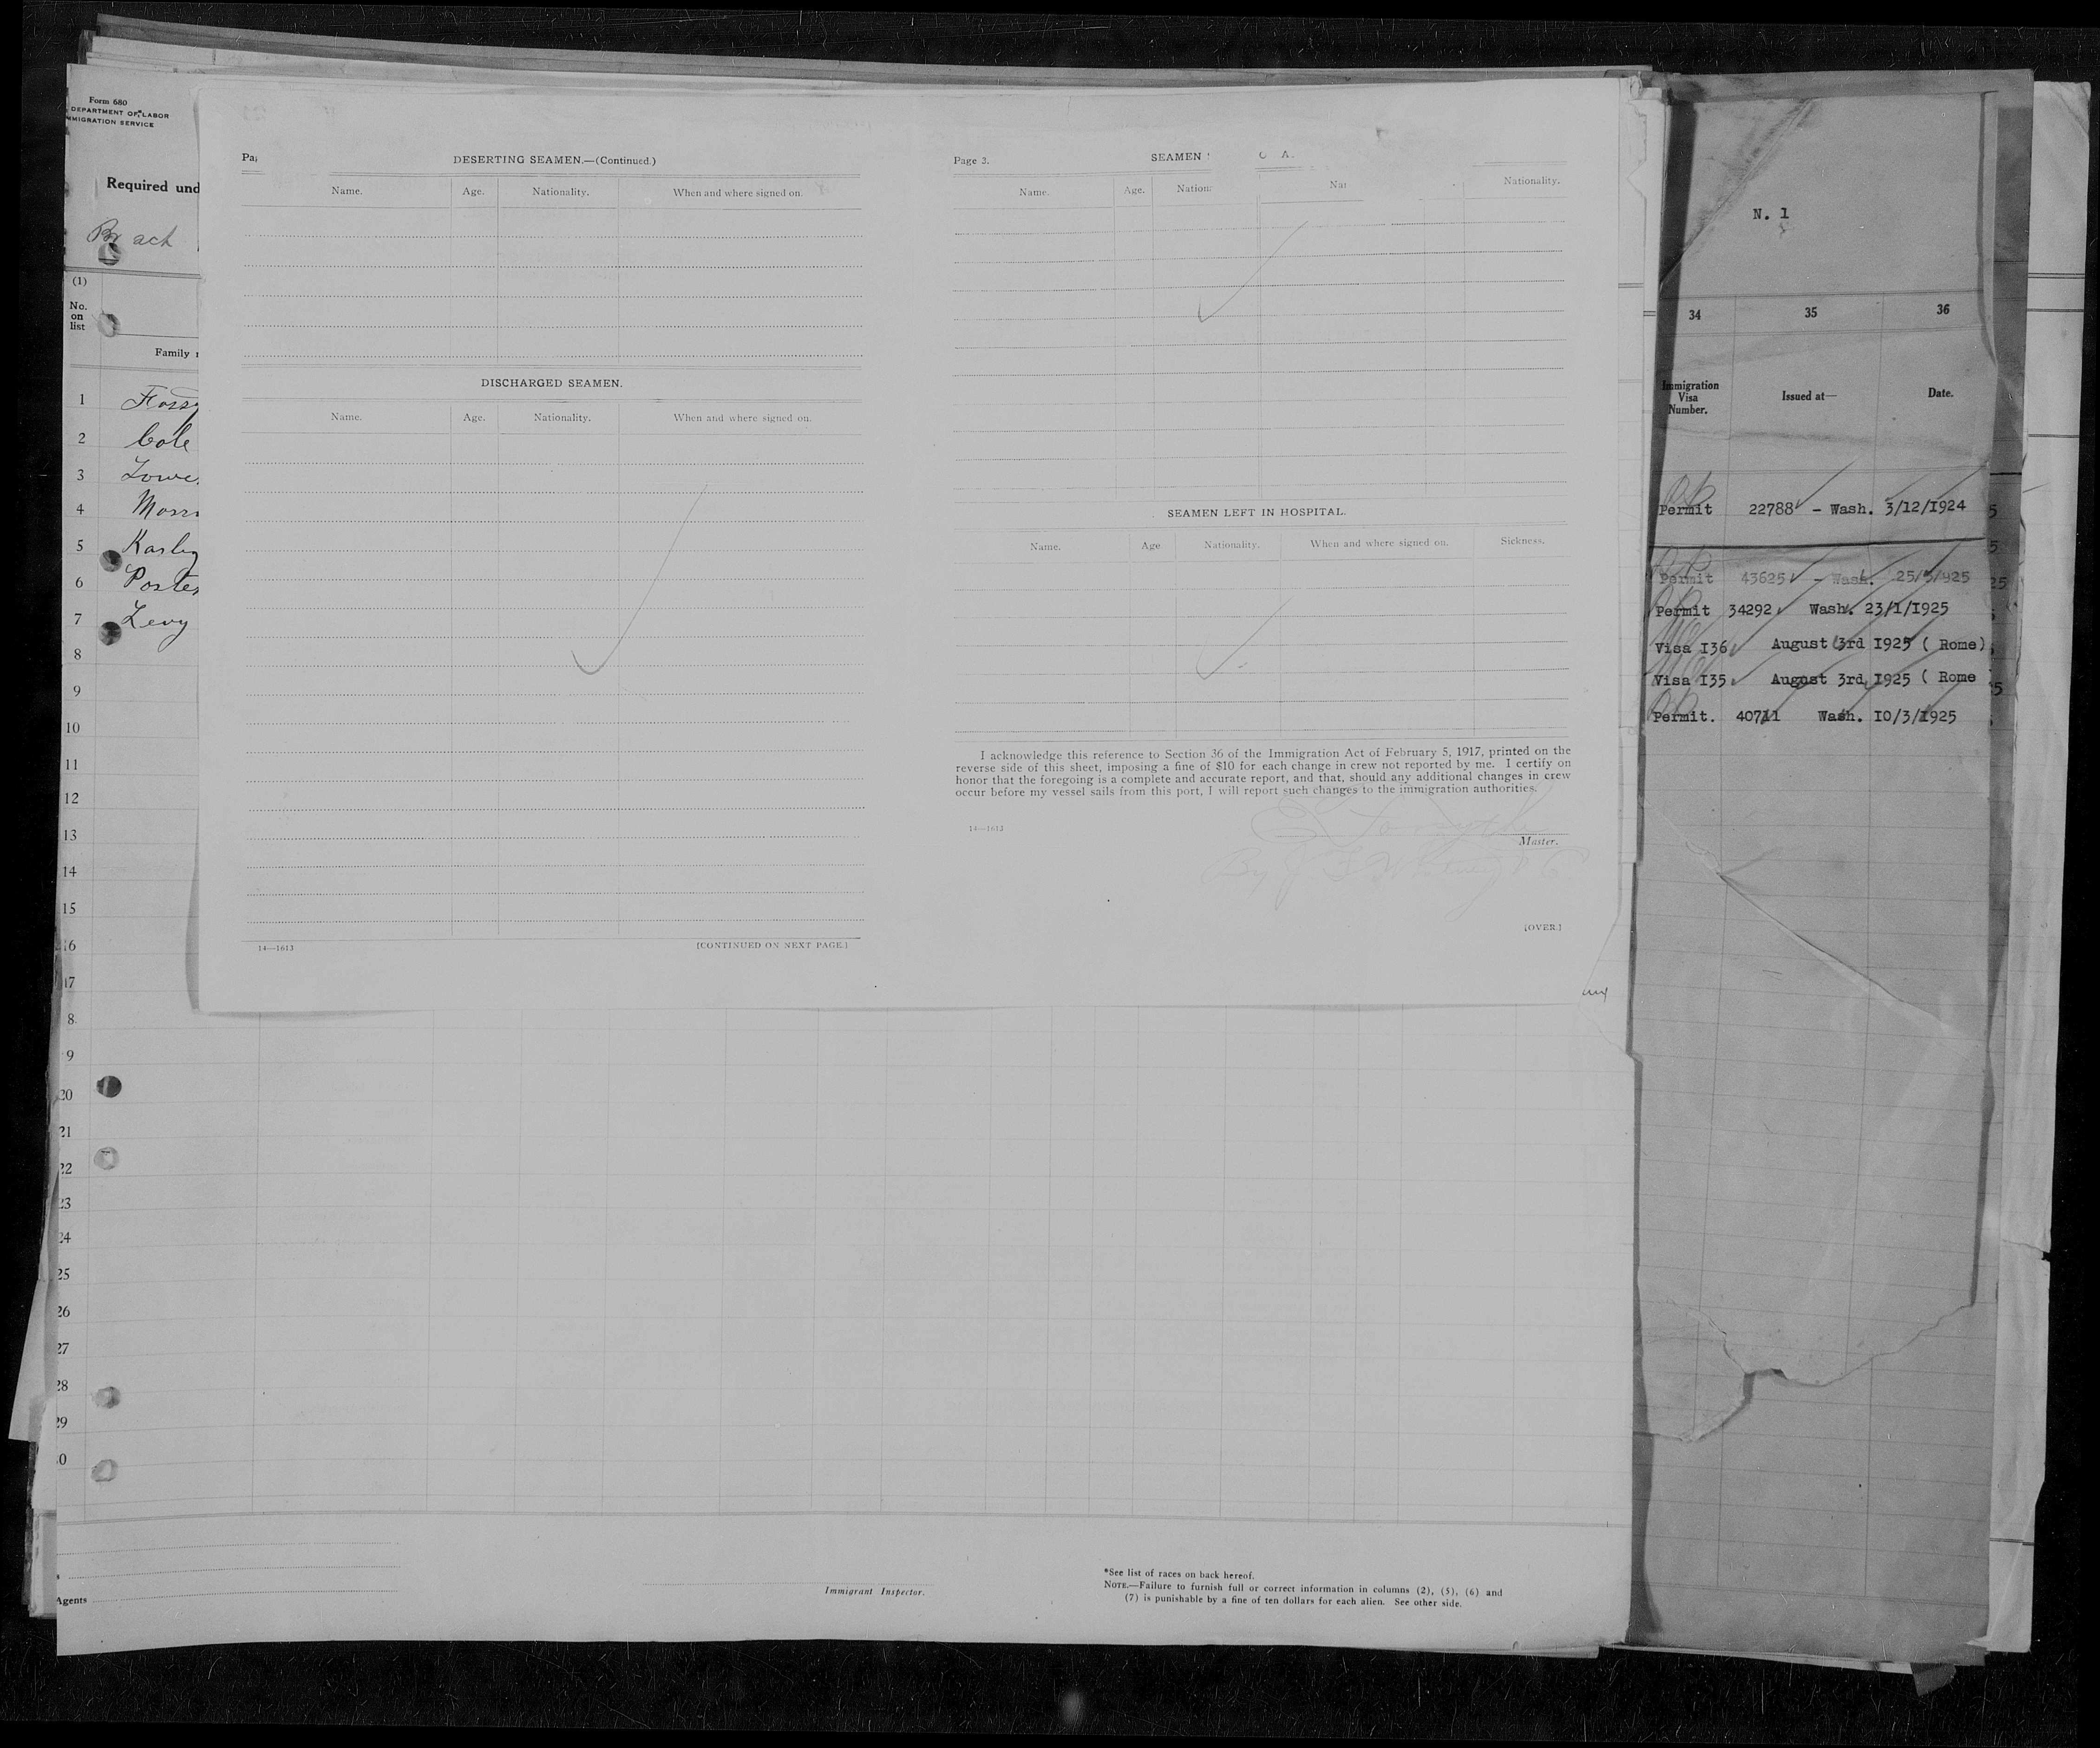 Form 680
DEPARTMENT OF LABOR
MMIGRATION SERVICE
Required und
Br act
(1)
No.
on
list
Family
1
2 Cole
3 Lowe
4 Morri
5 Karley
6 Porter
7 Levy
8
9
10
11
12
13
14
15
16
17
8
9
20
21
22
23
24
25
26
27
28
29
0
Agents
Immigrant Inspector.
*See list of races on back hereof.
NOTE.—Failure to furnish full or correct information in columns (2), (5), (6) and
(7) is punishable by a fine of ten dollars for each alien. See other side.
DESERTING SEAMEN.—(Continued.)
Name. Age. Nationality. When and where signed on.
DISCHARGED SEAMEN.
Name. Age. Nationality. When and where signed on.
14—1613 [CONTINUED ON NEXT PAGE.]
Page 3. SEAMEN
Name. Age. Nation Na Nationality.
SEAMEN LEFT IN HOSPITAL.
Name. Age Nationality. When and where signed on. Sickness.
I acknowledge this reference to Section 36 of the Immigration Act of February 5, 1917, printed on the
reverse side of this sheet, imposing a fine of $10 for each change in crew not reported by me. I certify on
honor that the foregoing is a complete and accurate report, and that, should any additional changes in crew
occur before my vessel sails from this port, I will report such changes to the immigration authorities.
14—1613
Master.
By
[OVER.]
N. 1
34 35 36
Immigration
Visa
Number.
Issued at—
Date.
Permit 22788 - Wash. 3/12/1924
Permit 43625 - Wash. 25/5/925
Permit 34292 Wash. 23/1/1925
Visa I36 August 3rd 1925 ( Rome)
Visa I35 August 3rd 1925 ( Rome
Permit. 40711 Wash. 10/3/1925